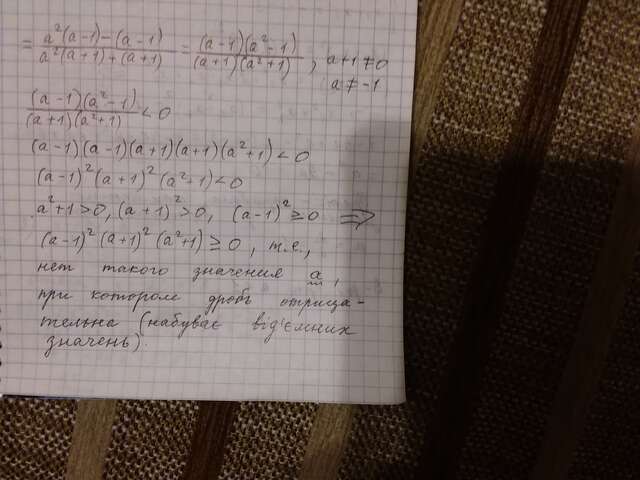 = a²(a-1)-(a-1) / a²(a+1)+(a+1) = (a-1)(a²-1) / (a+1)(a²+1) , a+1≠0
a≠-1
(a-1)(a²-1) / (a+1)(a²+1) < 0
(a-1)(a-1)(a+1)(a+1)(a²+1) < 0
(a-1)²(a+1)²(a²+1) < 0
a²+1>0, (a+1)²>0, (a-1)²≥0 ⇒
(a-1)²(a+1)²(a²+1) ≥ 0, т.е.,
нет такого значения a,
при котором дробь отрица-
тельна (набуває від'ємних
значень).